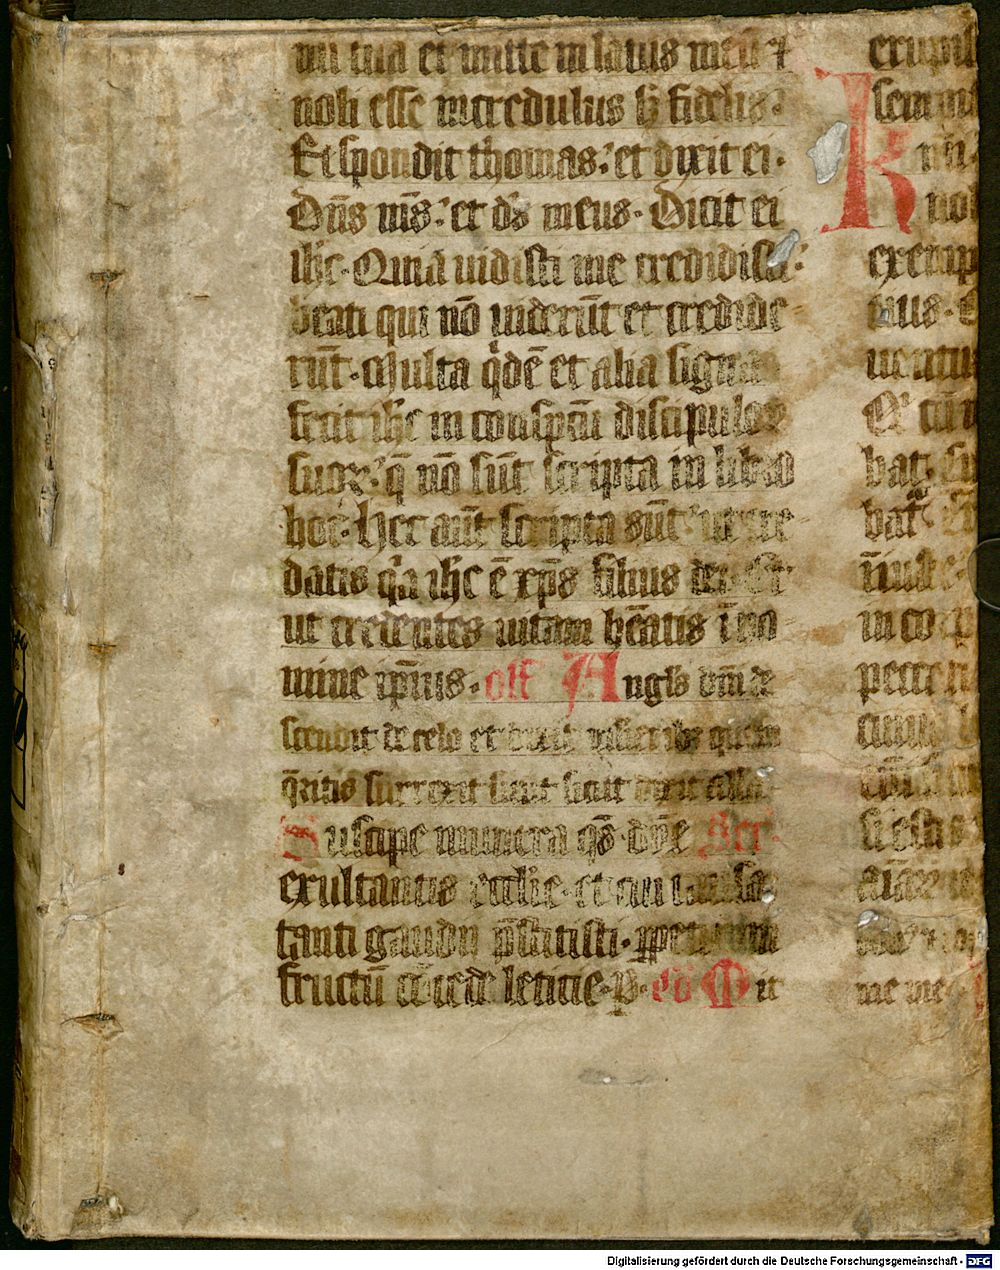 nū tua et mitte in latus meū ⁊
noli esse incredulus ſꝫ fidelis.
Respondit thomas. et dixit ei.
Dn̄s m̄s. et dꝰs meus. Dicit ei
ih̄c. Quia uidisti me credidisti:
beati qui nō uiderūt et credide
rūt. Multa q̇dē et alia signa
fecit ih̄c in conspc̄u discipulorꝫ
suoꝝ. q̄ nō sūt scripta in libro
hoc. Hec aūt scripta sūt. ut cre
datis qͣa ih̄c ē xp̄s filius dei. Et
ut credentes uitam hēatis ī no
mine ip̄ius. off Angl̓s dn̄i de
scendit de celo et dixit mulieribꝫ quem
q̄ritis surrexit sicut dixit alla.
Suscipe munera qs̄ dn̄e Secr̄.
exultantis ecclie. et cui causā
tanti gaudii p̄stitisti. ꝑpetuum
fructū cōcede leticie. P. Cō Mit
exupi
semin
K
nri.
nol
exemp
tuus. E
uentu
Et cū
bat. su
bat
in cor
pecca
me me
Digitalisierung gefördert durch die Deutsche Forschungsgemeinschaft - DFG